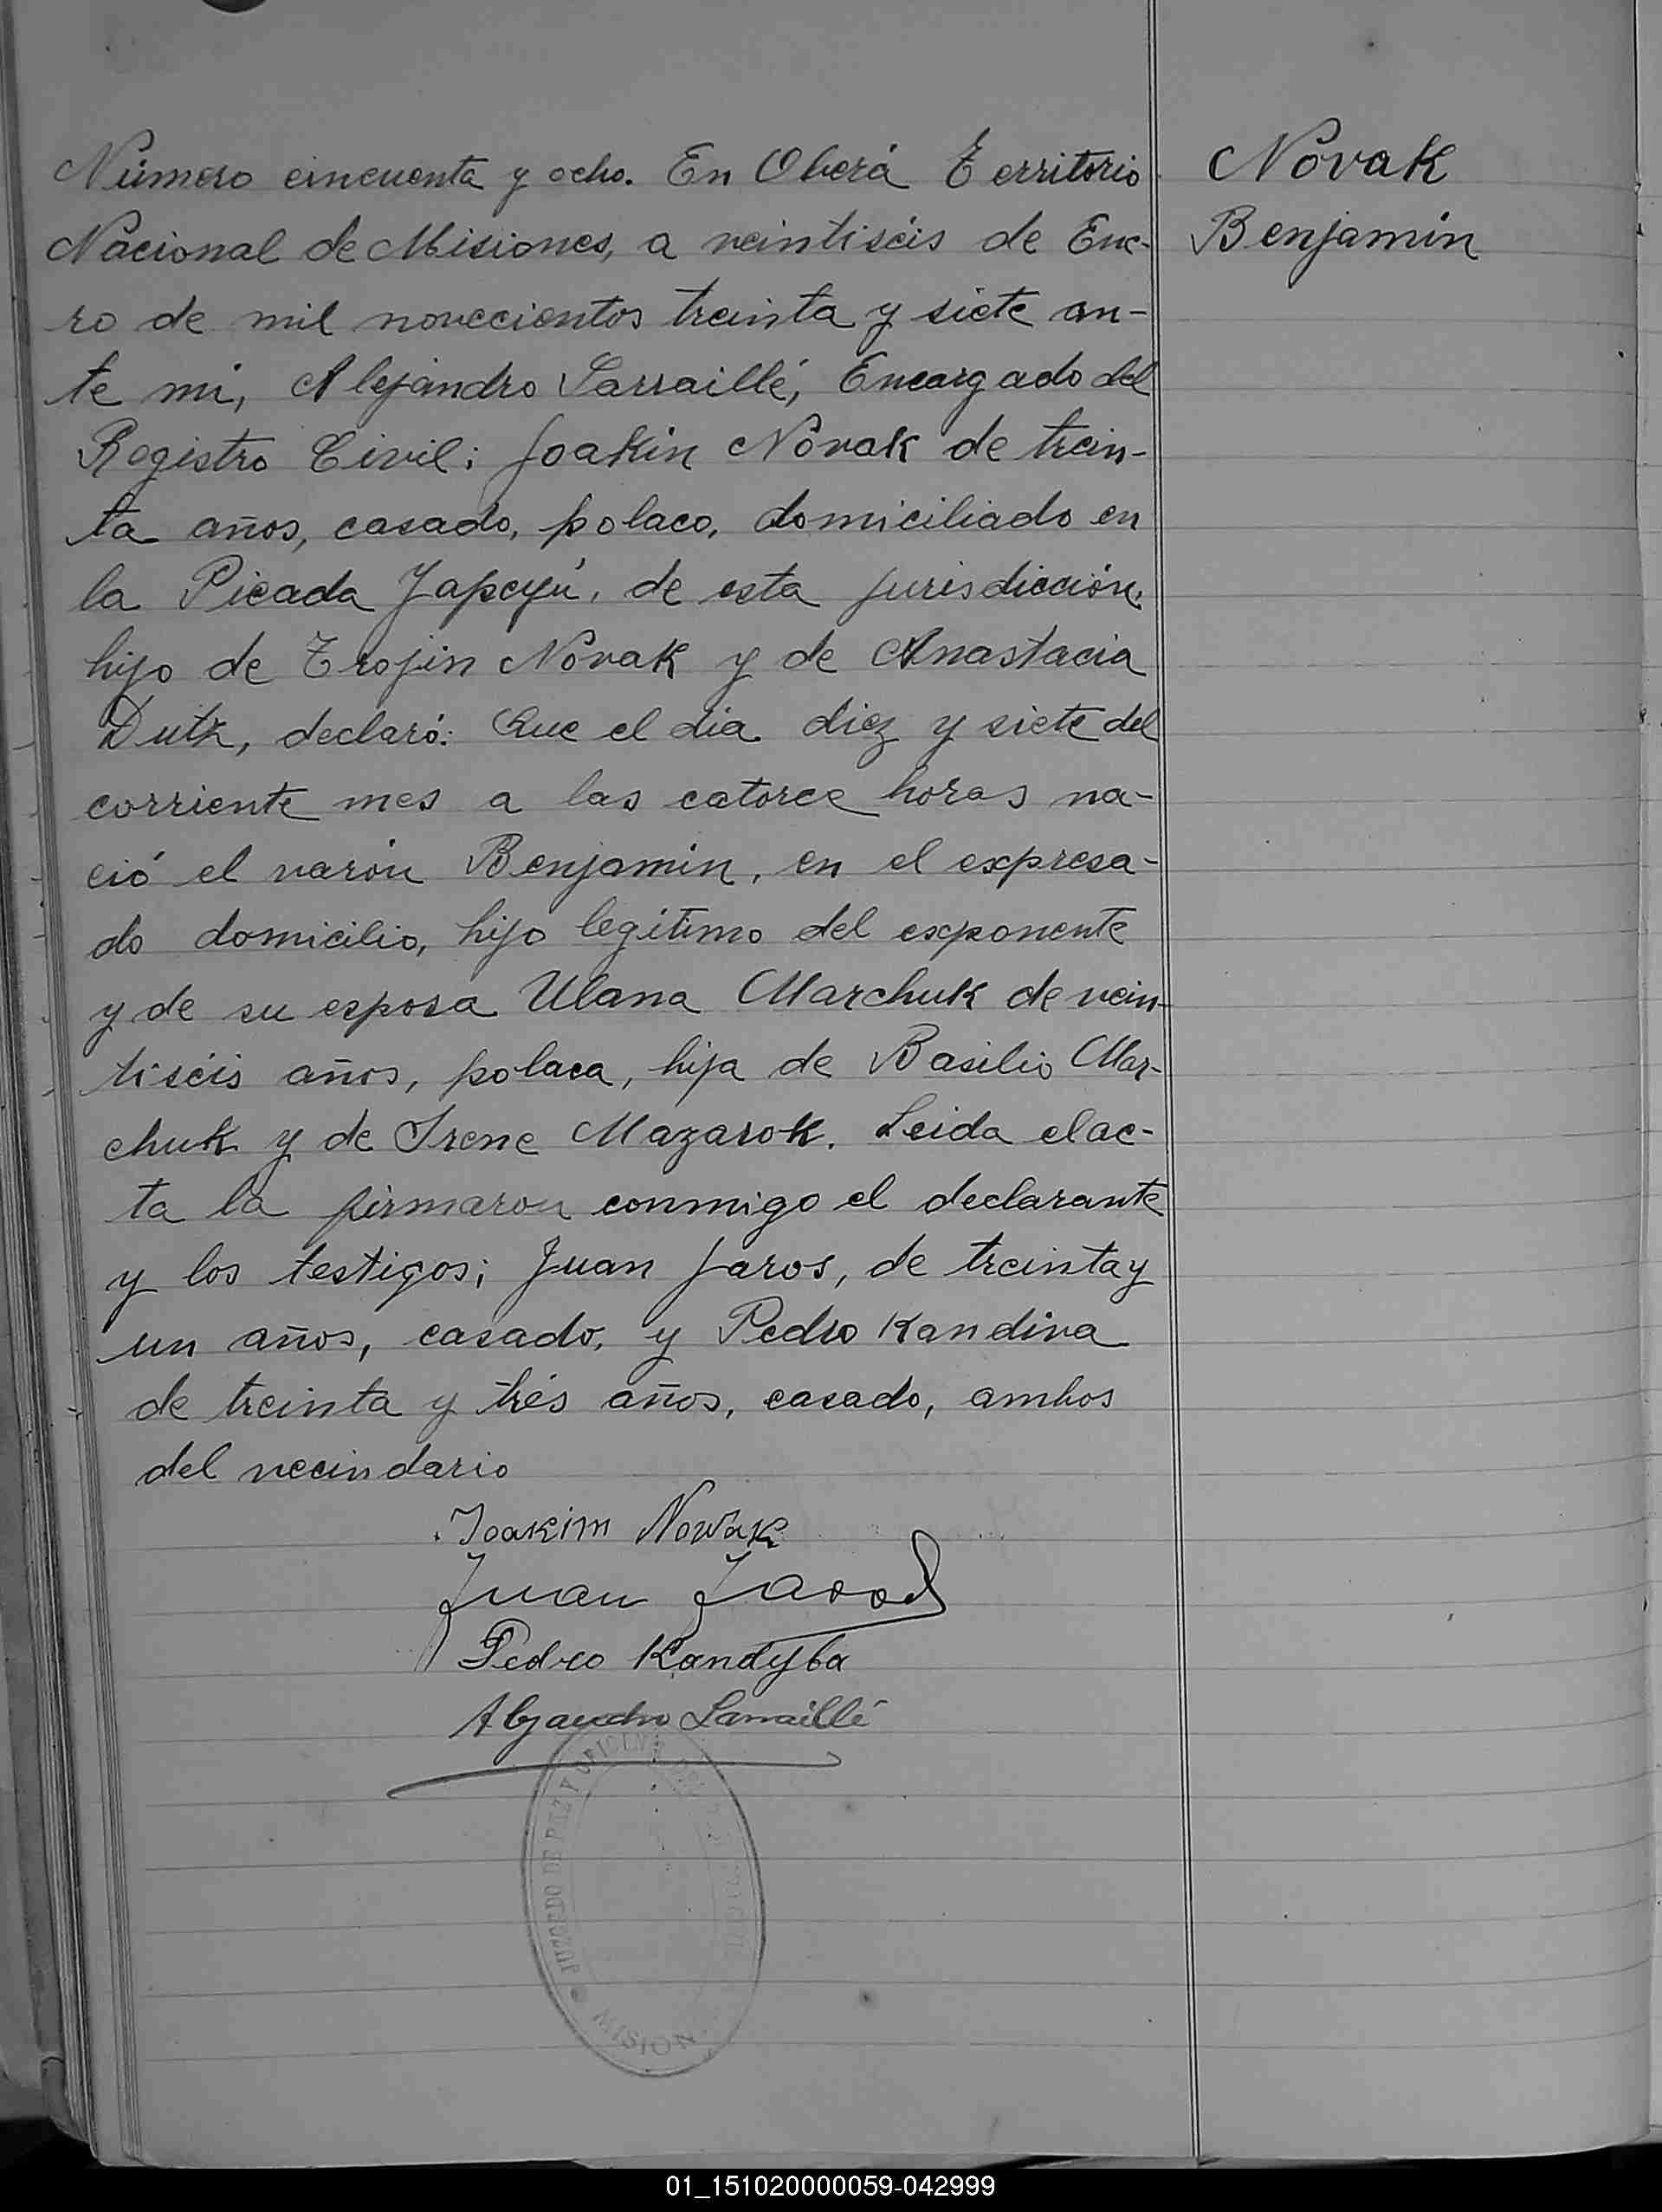 Número cincuenta y ocho. En Oberá Territorio
Nacional de Misiones, a veintiséis de Ene-
ro de mil novecientos treinta y siete an-
te mi, Alejandro Larraillé, Encargado del
Registro Civil; Joakin Novak de trein-
ta años, casado, polaco, domiciliado en
la Picada Yapeyú, de esta jurisdicción,
hijo de Trojin Novak y de Anastacia
Dutk, declaró: Que el dia diez y siete del
corriente mes a las catorce horas na-
ció el varón Benjamin, en el expresa-
do domicilio, hijo legítimo del exponente
y de su esposa Ulana Marchuk de vein-
tiséis años, polaca, hija de Basilio Mar-
chuk y de Irene Mazarok. Leida el ac-
ta la firmaron conmigo el declarante
y los testigos; Juan Jaros, de treinta y
un años, casado, y Pedro Kandiva
de treinta y trés años, casado, ambos
del vecindario
Joakim Nowak
Juan Jaros
Pedro Kandyba
Alejandro Larraillé
JUZGADO DE PAZ Y OFICINA
MISION
Novak
Benjamin
01_151020000059-042999